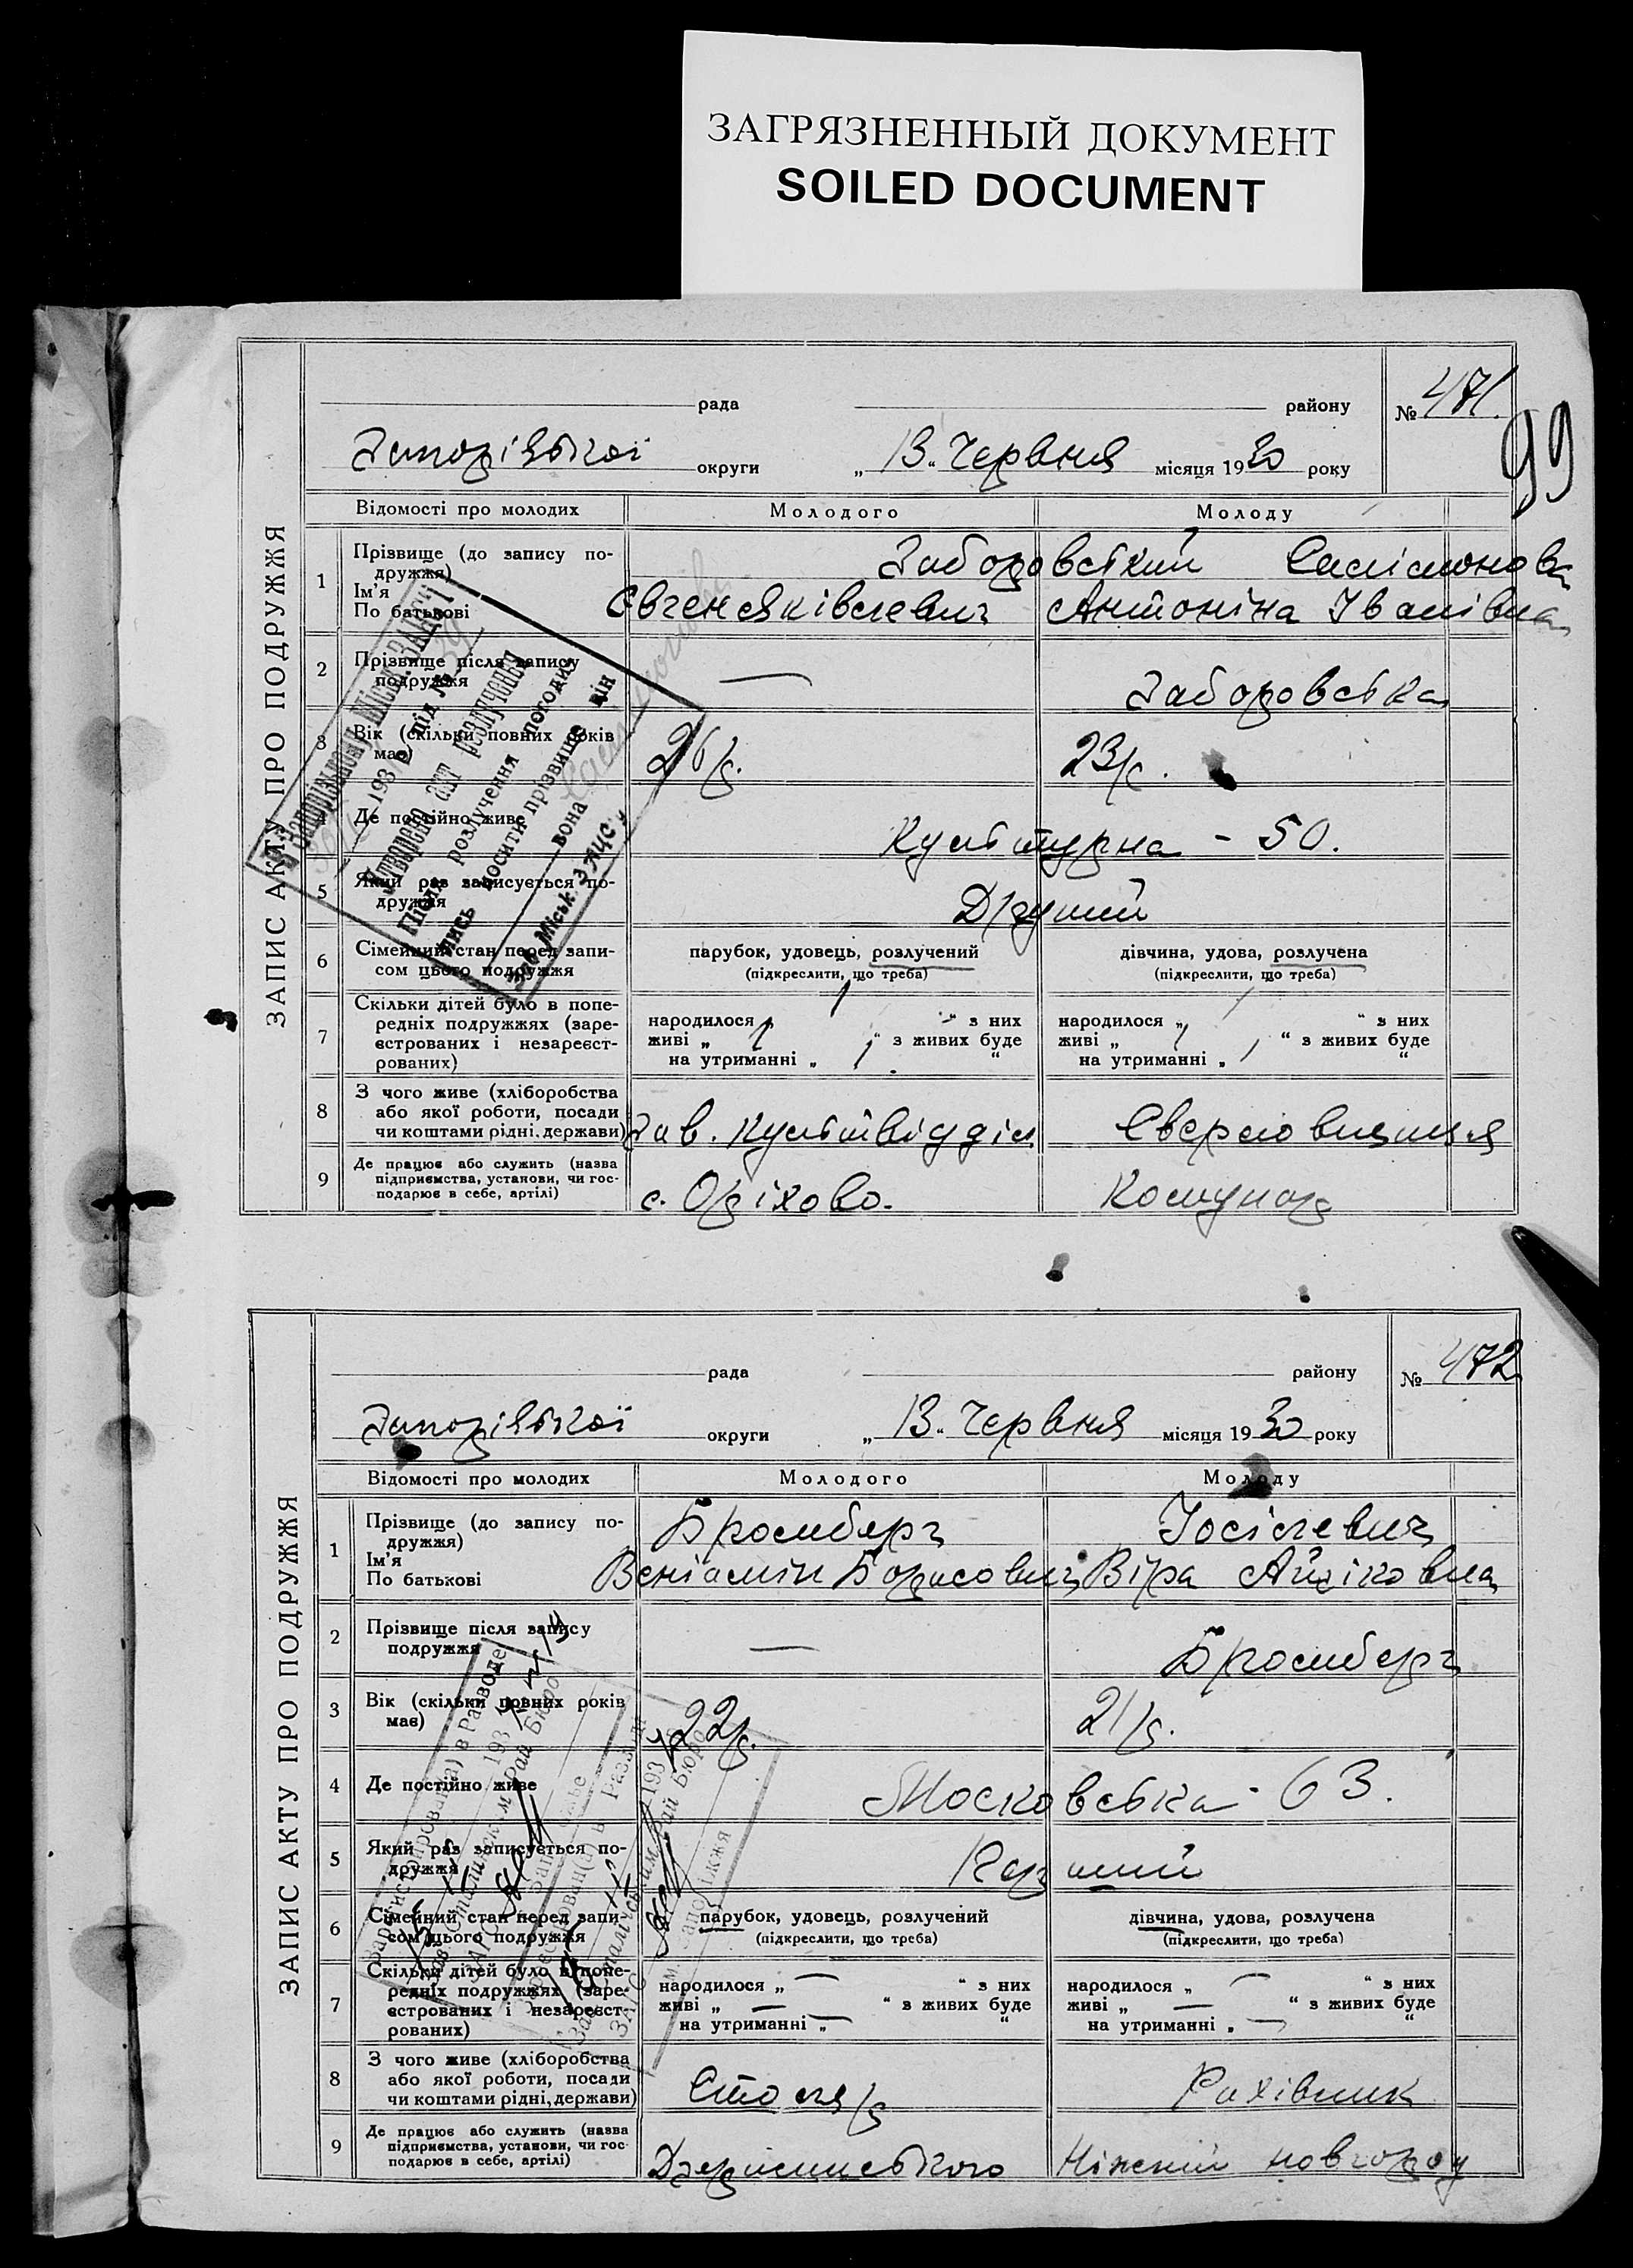 ЗАГРЯЗНЕННЫЙ ДОКУМЕНТ
SOILED DOCUMENT
99
ЗАПИС АКТУ ПРО ПОДРУЖЖЯ
рада району № 471.
Запорізької округи „13“ Червня місяця 1930 року
Відомості про молодих Молодого Молоду
1 Прізвище (до запису по-
дружжя)
Ім'я
По батькові
Заборовський
Євген Яківлевич Антоніна Іванівна
2 Прізвище після запису
подружжя
— Заборовська
3 Вік (скільки повних років
має)
26 р. 23 р.
4 Де постійно живе
Культурна - 50.
5 Який раз записується по-
дружжя
Другий
6 Сімейний стан перед запи-
сом цього подружжя
парубок, удовець, розлучений дівчина, удова, розлучена
(підкреслити, що треба) (підкреслити, що треба)
7 Скільки дітей було в попе-
редніх подружжях (заре-
єстрованих і незареєст-
рованих)
народилося „ “ з них народилося „ “ з них
живі „ “ з живих буде живі „ “ з живих буде
на утриманні „ “ на утриманні „ “
8 З чого живе (хліборобства
або якої роботи, посади
чи коштами рідні, держави)
Зав. Культвідділ Сверловщиця
9 Де працює або служить (назва
підприємства, установи, чи гос-
подарює в себе, артілі)
с. Оріхово. Комунар
В Запорізькому Міськ. ЗАГСі
193 під №
Утворено акт розлучення
Після розлучення погоди-
лись носити прізвище він
вона
Зав. Міськ. ЗАГС'у
ЗАПИС АКТУ ПРО ПОДРУЖЖЯ
рада району № 472
Запорізької округи „13“ Червня місяця 1930 року
Відомості про молодих Молодого Молоду
1 Прізвище (до запису по-
дружжя)
Ім'я
По батькові
Бромберг Іосілевич
Веніамін Борисович Віра
2 Прізвище після запису
подружжя
— Бромберг
3 Вік (скільки повних років
має)
22 р. 21 р.
4 Де постійно живе
Московська - 63.
5 Який раз записується по-
дружжя
Перший
6 Сімейний стан перед запи-
сом цього подружжя
парубок, удовець, розлучений дівчина, удова, розлучена
(підкреслити, що треба) (підкреслити, що треба)
7 Скільки дітей було в попе-
редніх подружжях (заре-
єстрованих і незареєст-
рованих)
народилося „ — “ з них народилося „ — “ з них
живі „ — “ з живих буде живі „ — “ з живих буде
на утриманні „ — “ на утриманні „ — “
8 З чого живе (хліборобства
або якої роботи, посади
чи коштами рідні, держави)
Столяр Рахівник
9 Де працює або служить (назва
підприємства, установи, чи гос-
подарює в себе, артілі)
Дзержинського
Зарегистрирован(а) в Разводе
193
Рай Бюро
193
Рай Бюро